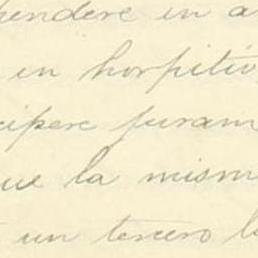 hendere in a
en hospitio
cipere furam
que la mism
un tercero l